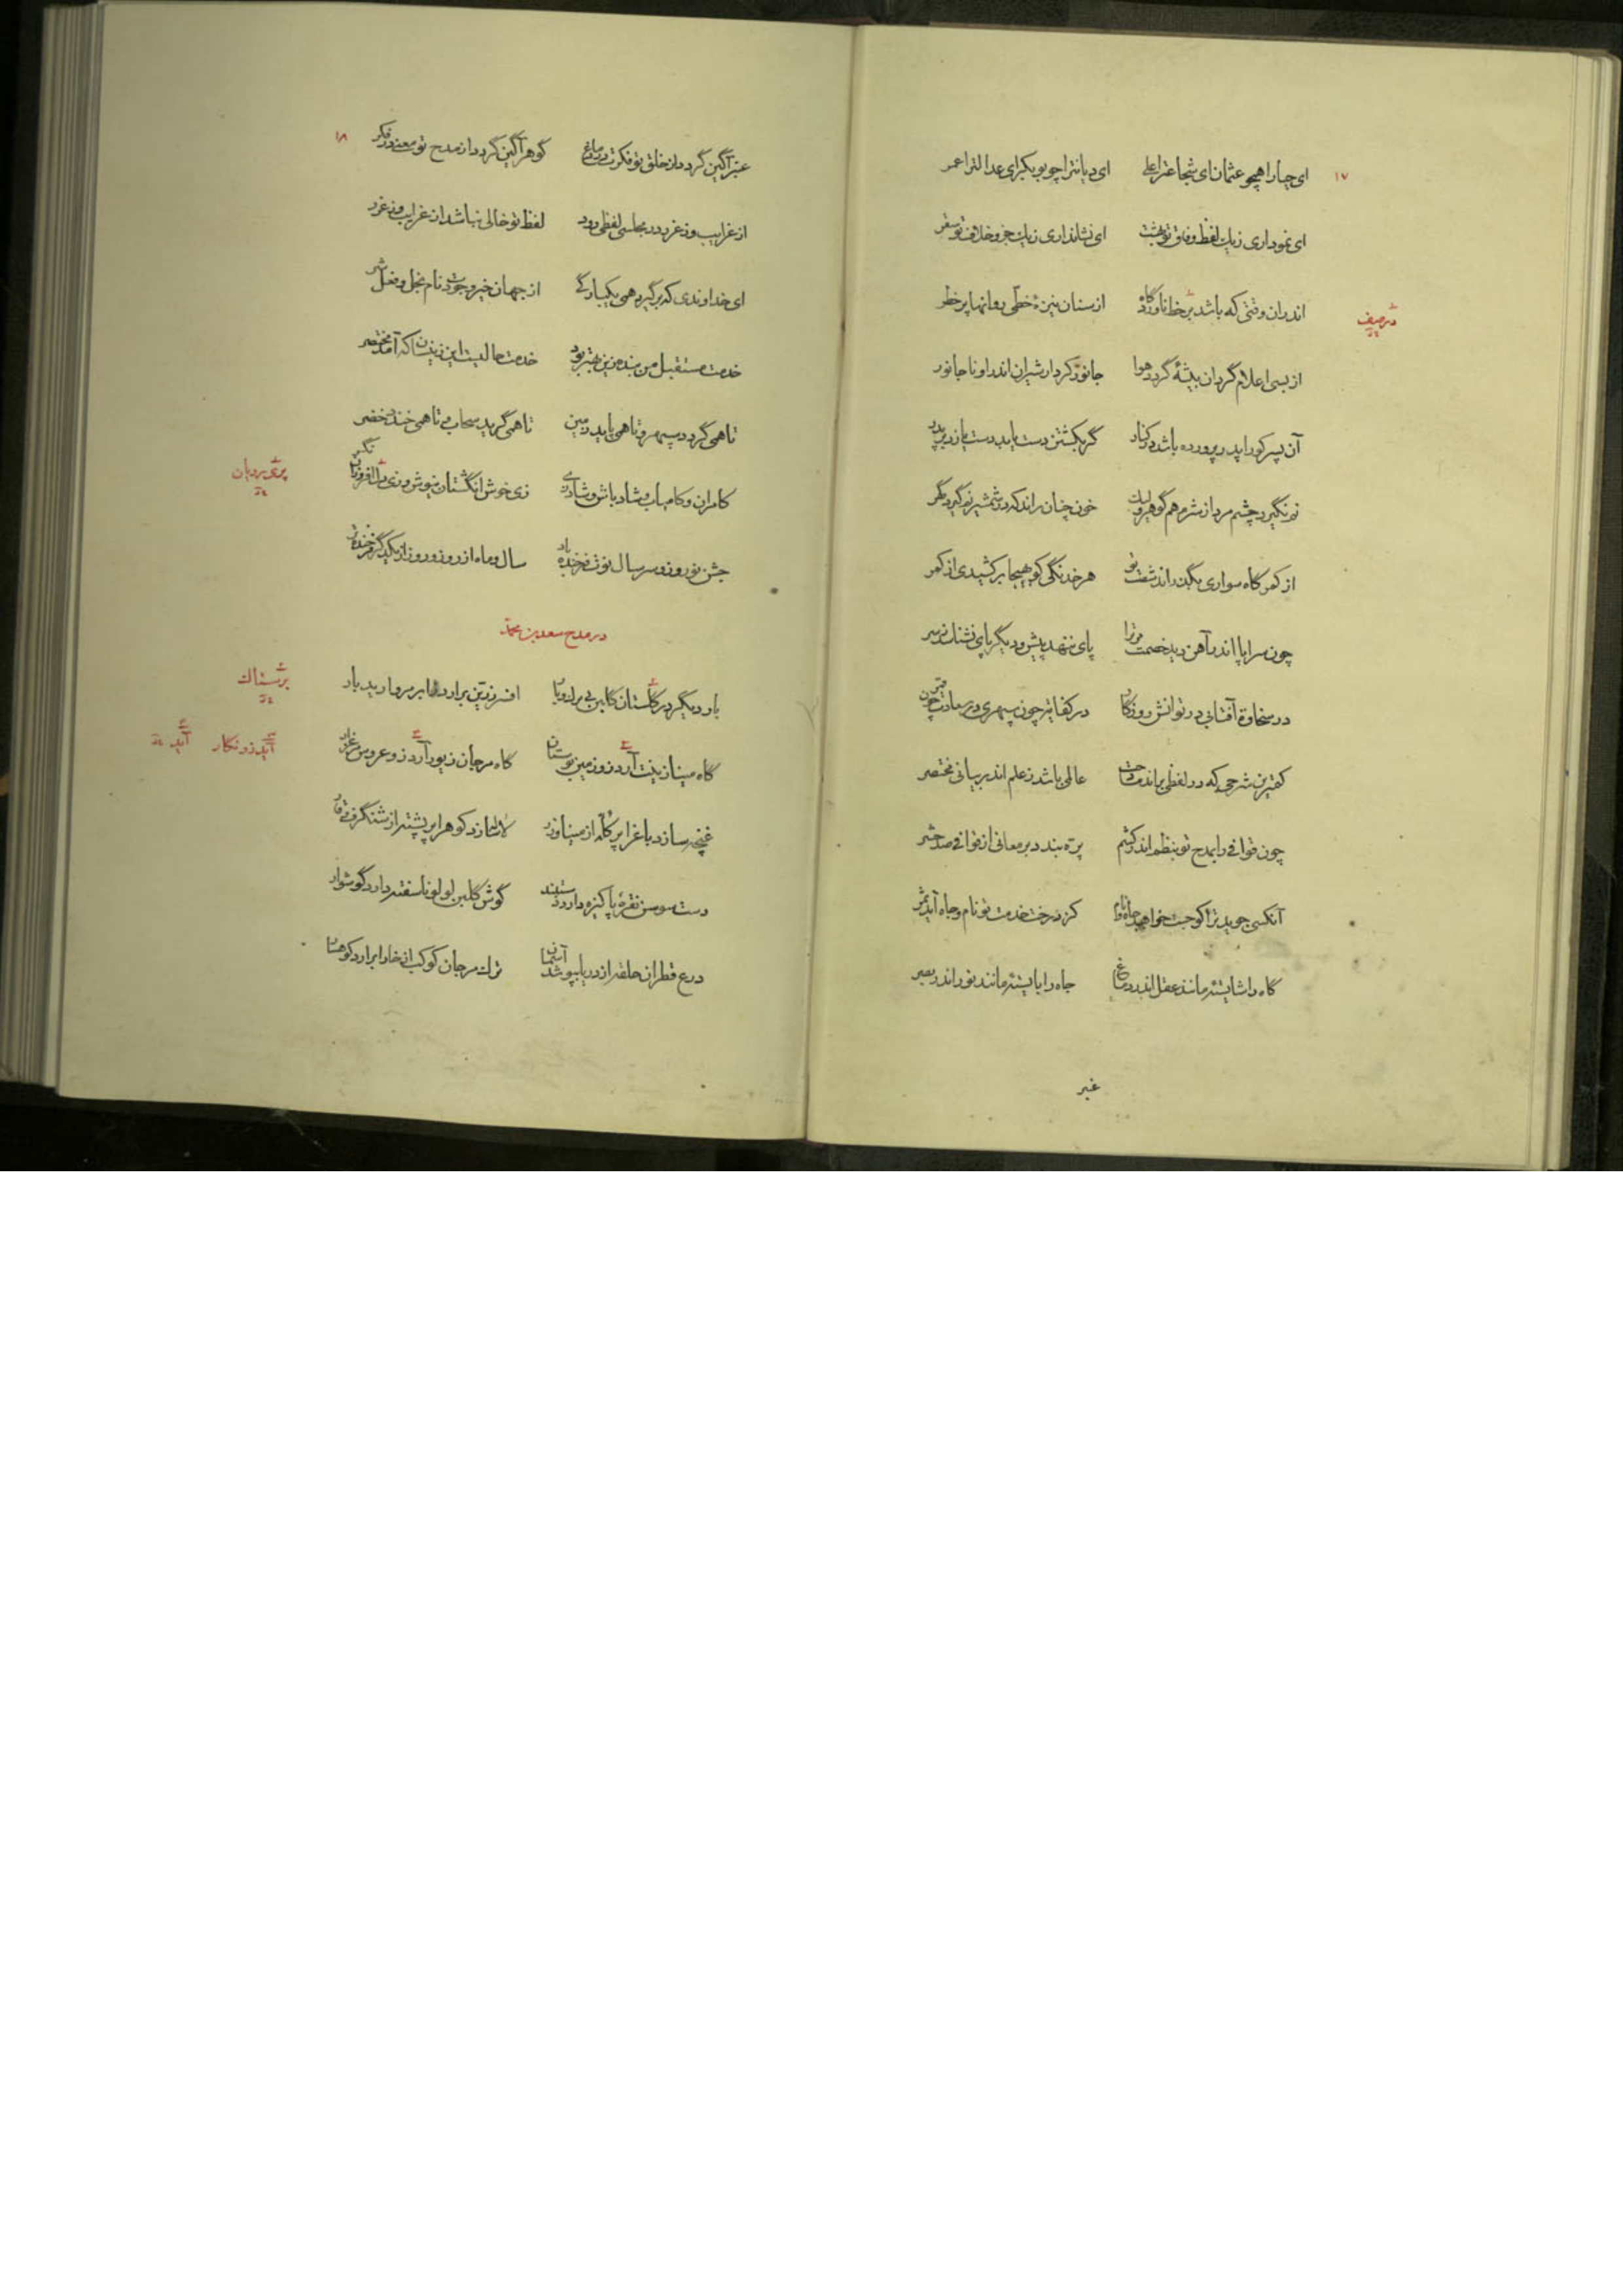 ۱۷
ای حیا را همچو عثمان ای شجاعترا علی ای دیانترا چو بوبکر ای عدالترا عمر
ای نموداری ز یک لفظ وفاق تو بهشت ای نشانداری ز یک جزو خلاف تو سقر
اندران وقتی که باشد بر خط ناوردگاه از سنان نیزهٔ خطّی روانها پر خطر
از بسی اعلام گردان بیشهٔ گردد هوا جانور کردار شیران اندر او نا جانور
آن پسر کو را پدر پرورده باشد در کنار گر بکشتن دست یابد دست یازد بر پدر
نم نگیرد چشم مرد از شرم هم گوهر ولیک خون چنان راند که در شمشیر نم گیرد گهر
از کمرگاه سواری بگذراند شست تو هر خدنگی کو بهیجا بر کشیدی از کمر
چون سراپا اندر آهن دید خصمت مر ترا پای ننهد پیش و دیگر پای نشناسد ز سر
در سخاوة آفتابی در توانش روزگار در کفایة چون سپهری در سعادت چون قمر
کمترین شرحی که در لفظی براند مدحت عالمی باشد ز علم اندر بیانی مختصر
چون قوافی را بمدح تو بنظم اندر کشم پرّه بندد بر معانی از قوافی صد حشر
آنکسی جوید ترا کو جست خواهد جاه و نام کز درخت خدمت تو نام و جاه آید ثمر
گاه را شایستهٔ مانند عقل اندر دماغ جاه را بایستهٔ مانند نور اندر بصر
۱۸
عنبر آگین گردد از خلق تو فکرت در دماغ گوهر آگین گردد از مدح تو معنی در فکر
از غرایب وز غرر در مجلسی لفظی رود لفظ تو خالی نباشد از غرایب وز غرر
ای خداوندی که بر گیرد همی یکبارگی از جهان خیر وجودت نام بخل و فعل شر
خدمت مستقبل من بنده زین بهتر بود خدمت حالیست این زینسان که آمد مختصر
تا همی گردد سپهر و تا همی پاید زمین تا همی گرید سحاب و تا همی خندد خضر
کامران و کامیاب و شاد باش و شاد زی
جشن نوروز و سر سال نوت فرخنده باد سال و ماه از روز و روز از یکدگر فرخنده تر
در مدح سعد بن محمد
بار دیگر بر گلستان گلبن بی برگ و بار افسر زرّین بر آرد ابر مروارید بار
گاه مینا زینت آرد زو زمین بوستان گاه مرجان زیور آرد زو عروس مرغزار
غنچه سازد باغ را بر گلّه از مینا و زر لاله سازد کوه را بر پشته از شنگرف و قار
دست سوسن نقرهٔ پاکیزه دارد دستبند گوش گلبن لولو ناسفته دارد گوشوار
درع قطران حلقه از دریا بپوشد آسمان ترک مرجان کوکب از خارا بر آرد کوهسار